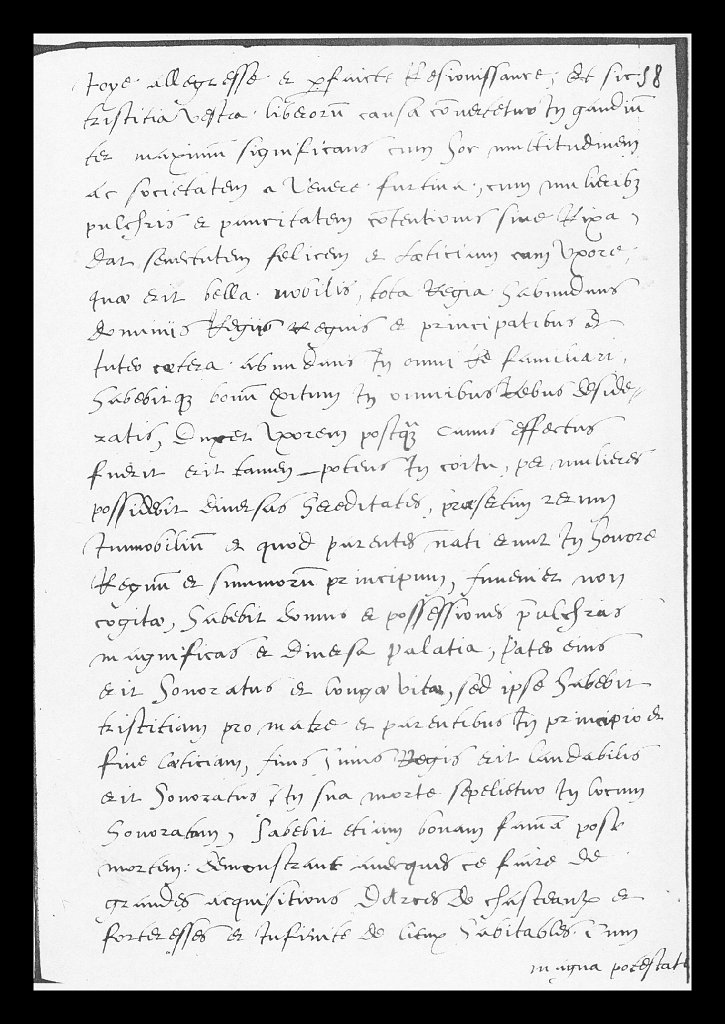 Joye allegresse et parfaicte Resiouissance, et sic 58
tristitia vestra liberorũ causa cõvertetur In gaudiũ
ter maximum significans cum hoc multitudinem
ac societatem a Venere furtiva, cum mulieribꝫ
pulchris et paucitatem cõtentionis sive Rixa,
dat senectutem felicem et lætitiam cum Uxore,
quæ erit bella nobilis, tota Regia habundans
dominiis Regiis Regnis et principatibus et
Inter cætera abundans In omni Re familiari,
habebitqꝫ bonũ exitum In omnibus Rebus deside-
ratis, Ducet Uxorem postqꝫ Canus effectus
fuerit erit tamen potens In coitu, per mulieres
possidebit diversas hereditates, præsertim rerum
Immobiliũ et quod parentes nati erunt In honore
Regum et summorũ principum, Inveniet non
cogita, habebit domus et possessiones pulchras
magnificas et diversa palatia, Pater eius
erit honoratus et longæ vitæ, sed ipse habebit
tristitiam pro matre et parentibus In principio et
fine lætitiam, finis huius Regis erit laudabilis
erit honoratus In sua morte sepelietur In locum
honoratum, habebit etiam bonam famã post
mortem: demonstrant avecques ce faire de
grandes acquisitions D'Arces de chasteaulx et
forteresses et Infinité de lieux habitables cum
magna potestate